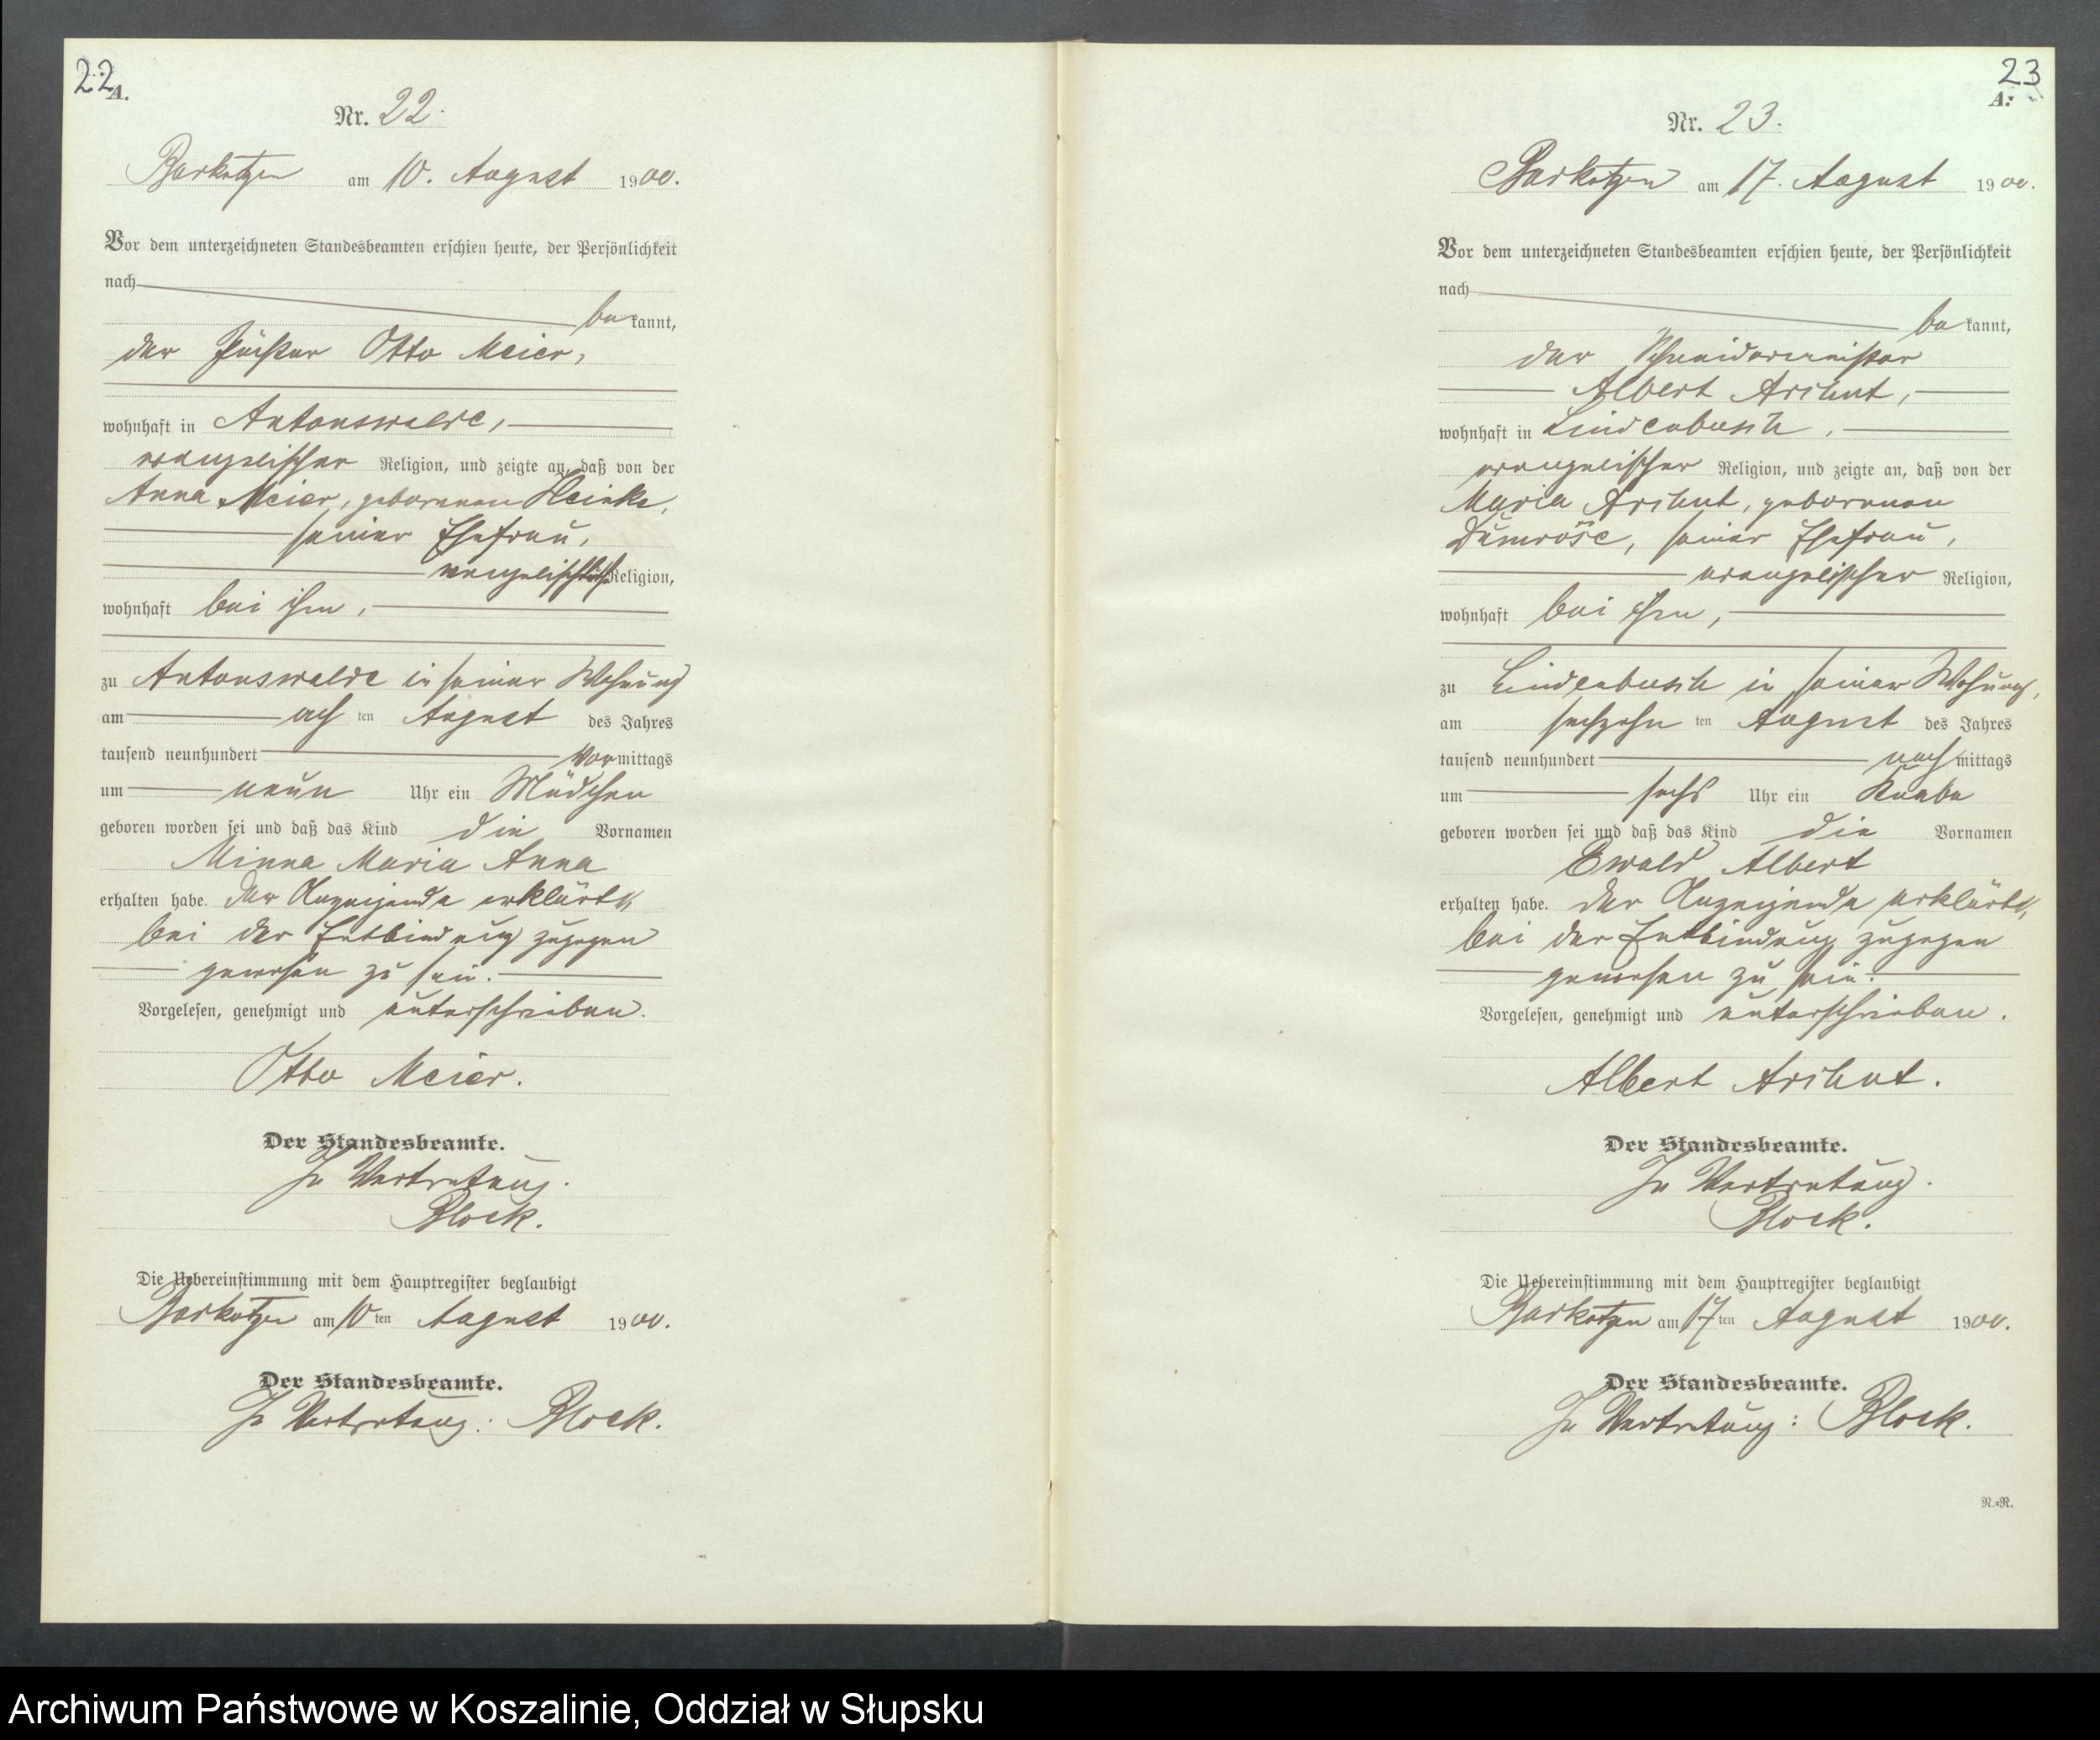 22
A.
Nr. 22.
Barkotzen am 10. August 1900.
Vor dem unterzeichneten Standesbeamten erschien heute, der Persönlichkeit
nach
be kannt,
der Otto Meier,
wohnhaft in Antonswalde,
evangelischer Religion, und zeigte an, daß von der
Anna Meier, geborenen Heinke,
seiner Ehefrau,
evangelischer Religion,
wohnhaft bei ihm,
zu Antonswalde in seiner Wohnung
am ach ten August des Jahres
tausend neunhundert Vor mittags
um neun Uhr ein Mädchen
geboren worden sei und daß das Kind die Vornamen
Minna Maria Anna
erhalten habe. Der Anzeigende erklärte,
bei der Entbindung zugegen
gewesen zu sein.
Vorgelesen, genehmigt und unterschrieben.
Otto Meier.
Der Standesbeamte.
In Vertretung.
Block.
Die Uebereinstimmung mit dem Hauptregister beglaubigt
Barkotzen am 10 ten August 1900.
Der Standesbeamte.
In Vertretung: Block.
23
A.
Nr. 23.
Barkotzen am 17. August 1900.
Vor dem unterzeichneten Standesbeamten erschien heute, der Persönlichkeit
nach
be kannt,
der Schneidermeister
Albert Arndt,
wohnhaft in Lindenbusch,
evangelischer Religion, und zeigte an, daß von der
Maria Arndt, geborenen
Dumröse, seiner Ehefrau,
evangelischer Religion,
wohnhaft bei ihm,
zu Lindenbusch in seiner Wohnung,
am sechzehn ten August des Jahres
tausend neunhundert nach mittags
um sechs Uhr ein Knabe
geboren worden sei und daß das Kind die Vornamen
Ewald Albert
erhalten habe. Der Anzeigende erklärte,
bei der Entbindung zugegen
gewesen zu sein.
Vorgelesen, genehmigt und unterschrieben.
Albert Arndt.
Der Standesbeamte.
In Vertretung.
Block.
Die Uebereinstimmung mit dem Hauptregister beglaubigt
Barkotzen am 17 ten August 1900.
Der Standesbeamte.
In Vertretung: Block.
R.=R.
Archiwum Państwowe w Koszalinie, Oddział w Słupsku